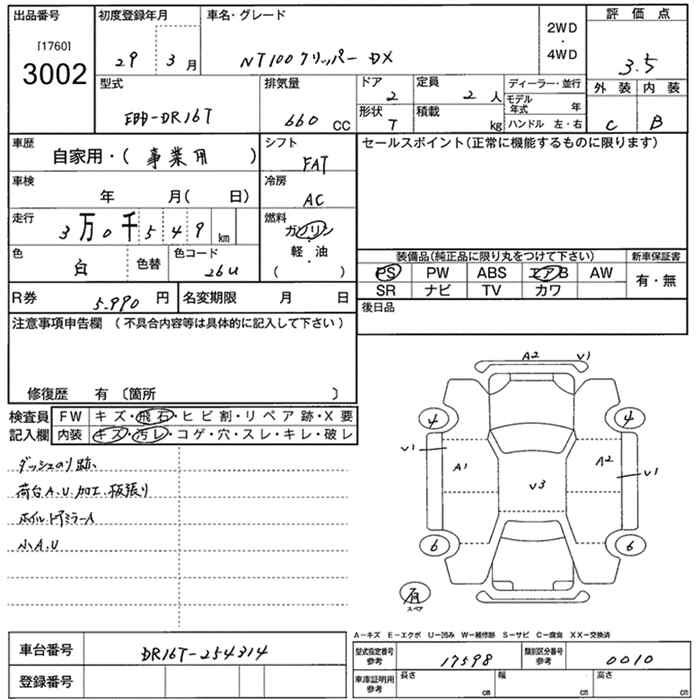 出品番号
[1760]
3002
初度登録年月
29 3月
車名・グレード
NT100クリッパー DX
2WD
・
4WD
評価点
3.5
型式
EBD-DR16T
排気量
660 CC
ドア
2
定員
2人
形状
T
積載
kg
ディーラー・並行
モデル年式 年
ハンドル 左・右
外装 内装
C B
車歴
自家用・( 事業用 )
シフト
FAT
セールスポイント(正常に機能するものに限ります)
車検
年 月( 日)
冷房
AC
走行
3万0千549km
燃料
ガソリン
軽・油
( ・ )
色
白
色替
色コード
26U
装備品(純正品に限り丸をつけて下さい)
新車保証書
PS PW ABS エアB AW
有・無
SR ナビ TV カワ
R券
5.990円
名変期限 月 日
後日品
注意事項申告欄 (不具合内容等は具体的に記入して下さい)
修復歴 有 〔箇所 〕
検査員
記入欄
FW キズ・飛石・ヒビ割・リペア跡・X要
内装 キズ・汚レ・コゲ・穴・スレ・キレ・破レ
ダッシュのり跡、
荷台A.U.加工.板張り
小A.U
A2 V1
4 4
V1 A1 A2 V1
V3
6 6
有
スペア
A-キズ E-エクボ U-凹み W-補修跡 S-サビ C-腐食 XX-交換済
車台番号
DR16T-254314
登録番号
型式指定番号
参考
17598
類別区分番号
参考
0010
車庫証明用
参考
長さ cm
幅 cm
高さ cm